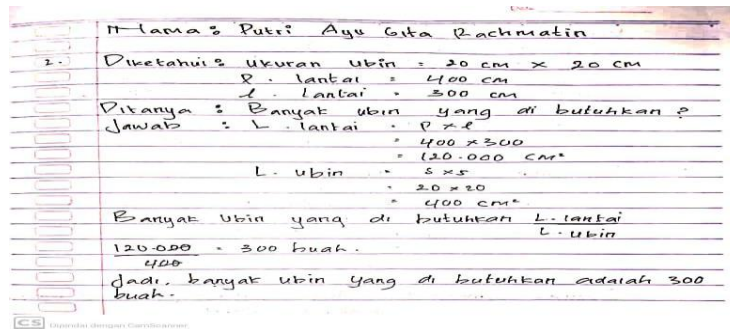 Nama : Putri Ayu Gita Rachmatin
2. Diketahui : Ukuran Ubin = 20 cm × 20 cm
P. lantai = 400 cm
l. Lantai = 300 cm
Ditanya : Banyak ubin yang di butuhkan ?
Jawab : L. lantai = P × l
= 400 × 300
= 120.000 cm²
L. ubin = s × s
= 20 × 20
= 400 cm²
Banyak Ubin yang di butuhkan L. lantai
L. ubin
120.000 = 300 buah.
400
Jadi, banyak ubin yang di butuhkan adalah 300
buah.
CS Dipindai dengan CamScanner